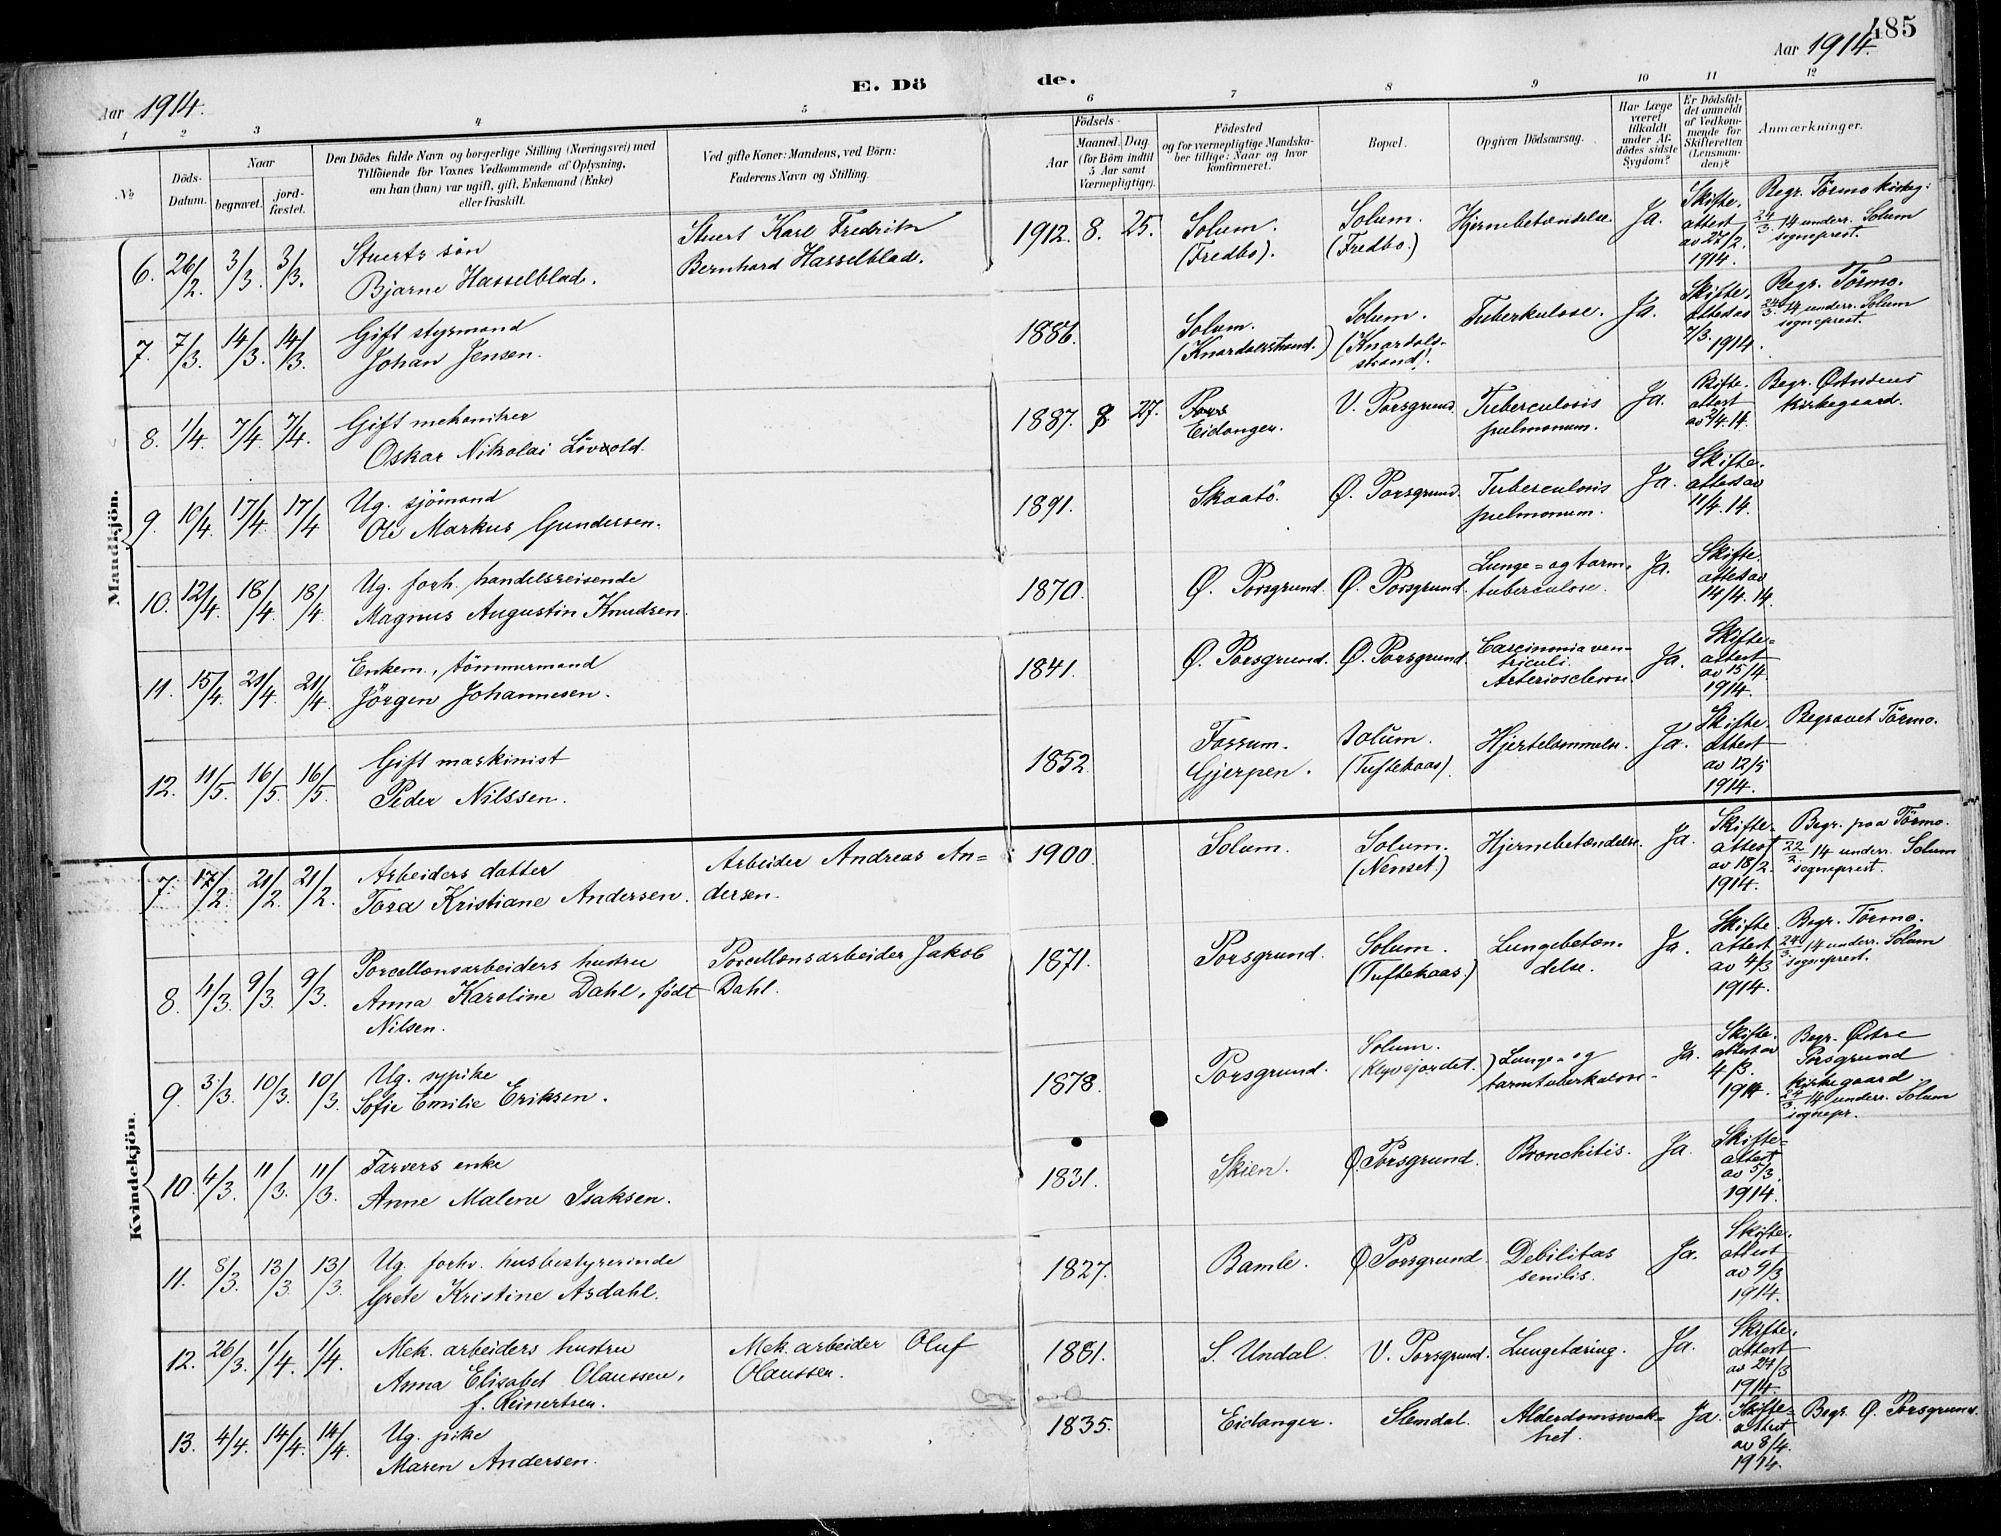 485
Aar 1914.
E. Dö de.
Aar 1914.
1 2 3 4 5 6 7 8 9 10 11 12
No
Döds-
Datum.
Naar
begravet.
jord-
fæstet.
Den Dödes fulde Navn og borgerlige Stilling (Næringsvei) med
Tilföiende for Voxnes Vedkommende af Oplysning,
om han (hun) var ugift, gift, Enkemand (Enke)
eller fraskilt.
Ved gifte Koner: Mandens, ved Börn:
Faderens Navn og Stilling.
Födsels-
Aar
Maaned. Dag
(for Börn indtil
5 Aar samt
Værnepligtige).
Födested
og for værnepligtige Mandska-
ber tillige: Naar og hvor
konfirmeret.
Bopæl.
Opgiven Dödsaarsag.
Har Læge
været
tilkaldt
under Af-
dødes sidste
Sygdom?
Er Dödsfal-
det anmeldt
af Vedkom-
mende for
Skifteretten
(Lensman-
den)?
Anmærkninger.
Mandkjön.
6. 26/2. 3/3. 3/3.
Stuerts sön
Bjarne Hasselblad.
Stuert Karl Fredrik
Bernhard Hasselblad.
1912. 8. 25.
Solum.
(Fredbo).
Solum.
(Fredbo.)
Hjernebetændelse.
Ja.
Skifte-
attest
av 27/2.
1914.
Begr. Törmo kirkeg.
24/3. 14 underr. Solum
sogneprest.
7. 7/3. 14/3. 14/3.
Gift styrmand
Johan Jensen.
1886.
Solum.
(Knardalsstrand.)
Solum.
(Knardals-
strand).
Tuberkulose.
Ja.
Skifte-
attest av
7/3. 1914.
Begr. Törmo.
24/3. 14 underr. Solum
sogneprest.
8. 1/4. 7/4. 7/4.
Gift mekaniker
Oskar Nikolai Lövold.
1887. 8. 27.
Pors
Eidanger.
V. Porsgrund.
Tuberculosis
pulmonum.
Ja.
Skifte-
attest
av 2/4. 14.
Begr. Østsidens
kirkegaard.
9. 10/4. 17/4. 17/4
Ug. sjömand
Ole Markus Gundersen.
1891.
Skaatö.
Ø. Porsgrund.
Tuberculosis
pulmonum.
Ja.
Skifte-
attest av
11/4. 14.
10. 12/4. 18/4. 18/4
Ug. forh. handelsreisende
Magnus Augustin Knudsen.
1870.
Ø. Porsgrund.
Ø. Porsgrund.
Lunge- og tarm-
tuberculose.
Ja.
Skifte
attest av
14/4. 14.
11. 15/4. 21/4. 21/4
Enkem., tömmermand
Jörgen Johannesen.
1841.
Ø. Porsgrund.
Ø. Porsgrund.
Carcinomia ven-
triculi.
Arteriosclerose.
Ja.
Skifte-
attest
av 15/4.
1914.
12. 11/5. 16/5. 16/5
Gift maskinist
Peder Nilssen.
1852.
Fossum.
Gjerpen.
Solum.
(Tuftekaas).
Hjertelammelse.
Ja.
Skifte-
attest
av 12/5
1914.
Begravet Törmo.
Kvindekjön.
7. 17/2. 21/2. 21/2.
Arbeiders datter
Tora Kristiane Andersen.
Arbeider Andreas An-
dersen.
1900.
Solum.
Solum.
(Nenset.)
Hjernebetændelse.
Ja.
Skifte-
attest
av 18/2.
1914.
Begr. paa Törmo.
22/2. 14 underr. Solum
sogneprest.
8. 4/3. 9/3. 9/3.
Porcellænsarbeiders hustru
Anna Karoline Dahl, født
Nilsen.
Porcellænsarbeider Jakob
Dahl.
1871.
Porsgrund.
Solum.
(Tuftekaas.)
Lungebetæn-
delse.
Ja.
Skifte-
attest
av 4/3
1914.
Begr. Törmo.
24/3. 14 underr. Solum
sogneprest.
9. 3/3. 10/3. 10/3.
Ug. sypike
Sofie Emilie Eriksen.
1878.
Porsgrund.
Solum.
(Klyvejordet.)
Lunge- og
tarmtuberkulose.
Ja.
Skifte-
attest av
4/3.
1914.
Begr. Østre
Porsgrund
kirkegaard.
24/3. 14 underr. Solum
sognepr.
10. 4/3. 11/3. 11/3.
Farvers enke
Anne Malene Isaksen.
1831.
Skien.
Ø Porsgrund.
Bronchitis.
Ja.
Skifte-
attest
av 5/3.
1914.
11. 8/3. 13/3. 13/3.
Ug. forhv. husbestyrerinde
Grete Kristine Asdahl.
1827.
Bamle.
Ø Porsgrund.
Debilitas
senilis.
Ja.
Skifte-
attest
av 9/3
1914.
12. 26/3. 1/4. 1/4.
Mek. arbeiders hustru
Anna Elisabet Olaussen,
f. Reinertsen.
Mek. arbeider Oluf
Olaussen.
1881.
S. Undal.
V. Porsgrund.
Lungetæring.
Ja.
Skifte-
attest
1914.
13. 4/4. 14/4. 14/4.
Ug. pike
Maren Andersen.
1835.
Eidanger.
Slemdal.
Alderdomssvak-
het.
Ja.
Skifte-
attest
av 8/4.
1914.
Begr. Ø. Porsgrund.